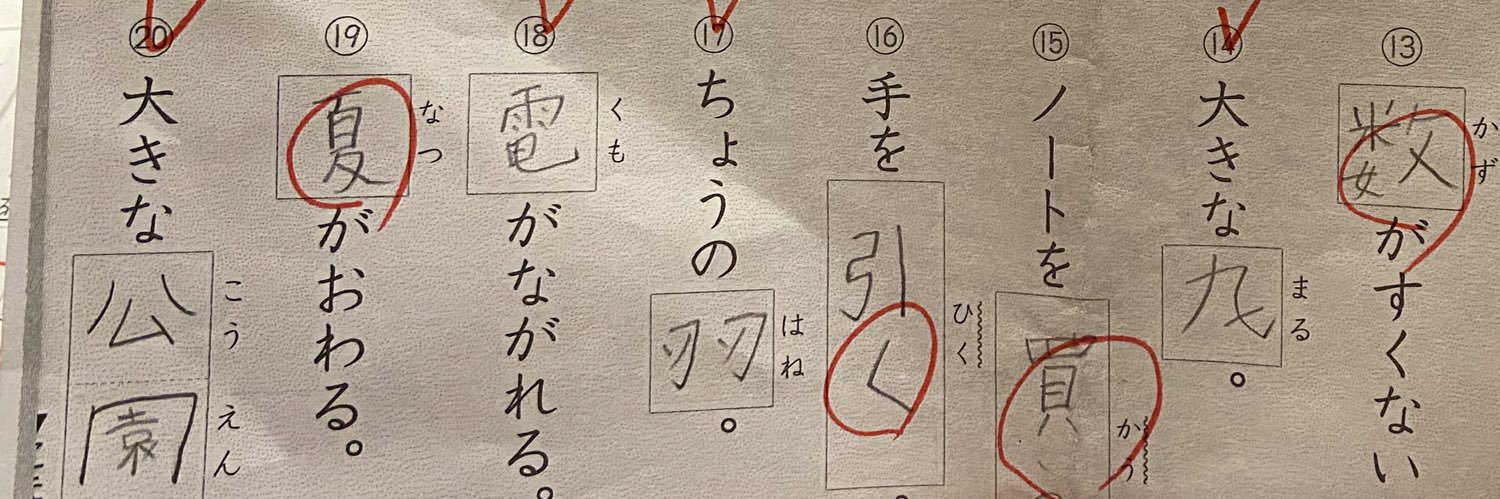 ⑬数がすくない
かず
⑭大きな九。
まる
⑮ノートを買
かう
⑯手を引く
ひく
⑰ちょうの羽。
はね
⑱電がながれる。
くも
⑲夏がおわる。
なつ
⑳大きな公園
こうえん